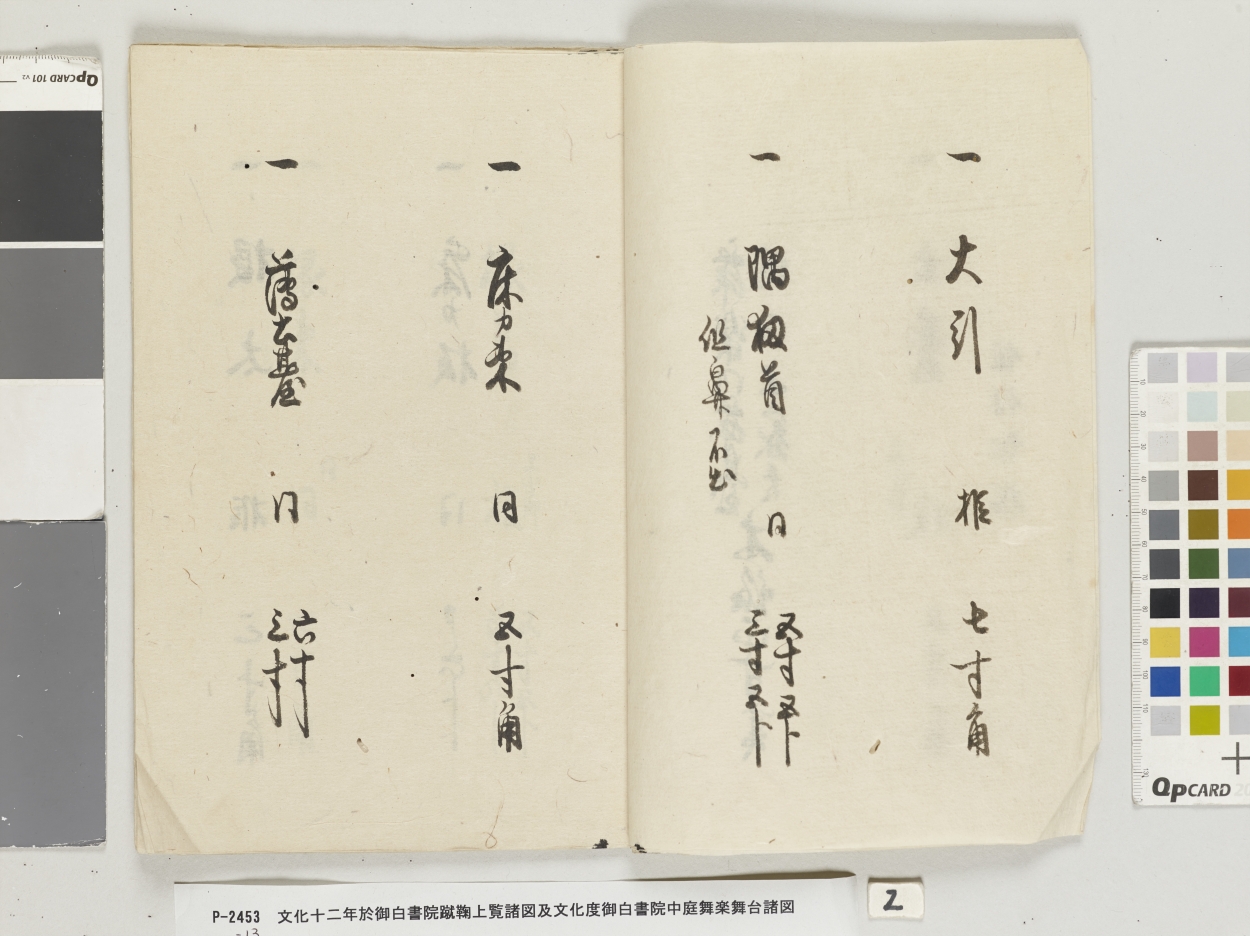 一 大引 栂 七寸角
一 隅扠首 同 五寸五卜 三寸五卜
但鼻不出
一 床力束 同 五寸角
一 同 六寸 三寸
QPCARD 101 v2
QPCARD 20
P-2453 文化十二年於御白書院蹴鞠上覧諸図及文化度御白書院中庭舞楽舞台諸図
-13
2